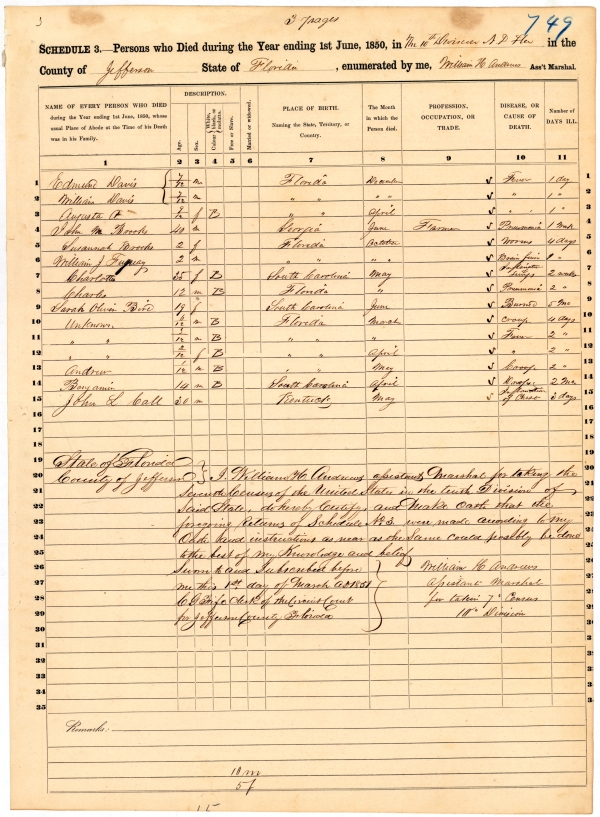 2 pages
749
SCHEDULE 3.—Persons who Died during the Year ending 1st June, 1850, in The 10th Division N. D. Flo in the
County of Jefferson State of Florida, enumerated by me, William H Andrews Ass't Marshal.
NAME OF EVERY PERSON WHO DIED during the Year ending 1st June, 1850, whose usual Place of Abode at the Time of his Death was in his Family.
DESCRIPTION.
Age.
Sex.
White, Colour black, or mulatto.
Free or Slave.
Married or widowed.
PLACE OF BIRTH.
Naming the State, Territory, or Country.
The Month in which the Person died.
PROFESSION, OCCUPATION, OR TRADE.
DISEASE, OR CAUSE OF DEATH.
Number of DAYS ILL.
1 2 3 4 5 6 7 8 9 10 11
1 Edmund Davis 7/12 m Florida December Fever 1 day
2 William Davis 7/12 m " " " " 1 "
3 Augusta 9/12 f B " " April " 1 "
4 John M Brooks 40 m Georgia June Farmer Pneumonia 1 Week
5 Susannah Brooks 2 f Florida October Worms 4 days
6 William J 2 m " " " "
7 Charlotte 25 f B South Carolina May 2 weeks
8 Charles 12 m B Florida " Pneumonia 2 "
9 Sarah Olivia Bird 19 f South Carolina June Burned 5 Mo
10 Unknown m B Florida March Croup 4 days
11 " " m B " " " Fever 2 "
12 " " 2/12 f B " " April " 2 "
13 Andrew m B " " May Croup 2 "
14 Benjamin 14 m B South Carolina April Dropsy 2 Mo
15 John L Call 30 m Kentucky May Inflamation of Chest 3 days
16
17
18
19 State of Florida
20 County of Jefferson } I, William H. Andrews assistant Marshal for taking the
21 Seventh Census of the United States in the tenth Division of
22 Said State, do hereby Certify and Make Oath that the
23 foregoing Returns of Schedule No 3 were made according to my
24 Oath and instructions as near as the Same Could possibly be done
25 to the best of my Knowledge and belief
26 Sworn to and Subscribed before William H Andrews
27 me this 1st day of March AD 1851 Assistant Marshal
28 Clerk of the Circuit Court for takin 7th Census
29 for Jefferson County Florida 10th Division
30
31
32
33
34
35
Remarks:
10 m
5 f
15